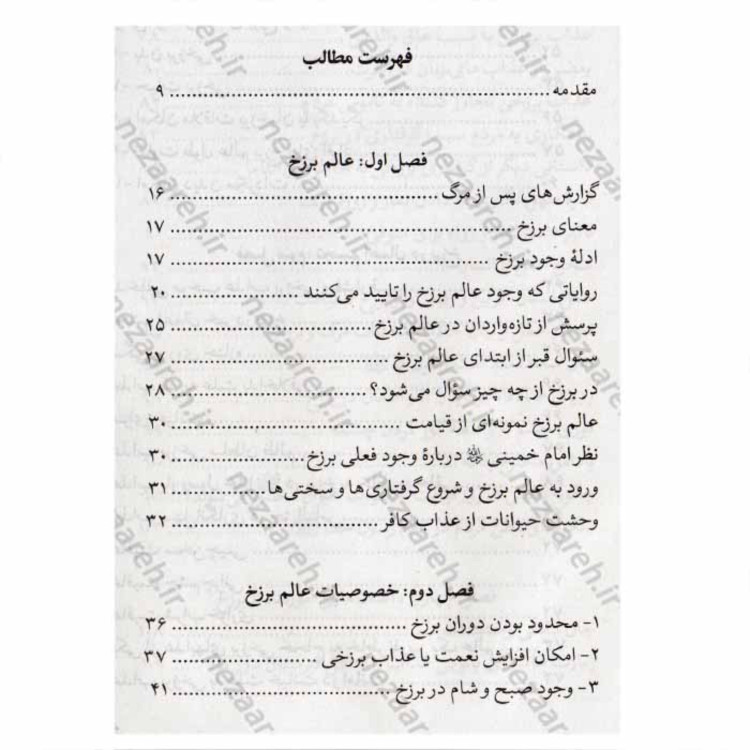 فهرست مطالب
مقدمه ........ ۹
فصل اول: عالم برزخ
گزارش‌های پس از مرگ ........ ۱۶
معنای برزخ ........ ۱۷
ادلهٔ وجود برزخ ........ ۱۷
روایاتی که وجود عالم برزخ را تایید می‌کنند ........ ۲۰
پرسش از تازه‌واردان در عالم برزخ ........ ۲۵
سئوال قبر از ابتدای عالم برزخ ........ ۲۷
در برزخ از چه چیز سؤال می‌شود؟ ........ ۲۸
عالم برزخ نمونه‌ای از قیامت ........ ۳۰
نظر امام خمینی دربارهٔ وجود فعلی برزخ ........ ۳۰
ورود به عالم برزخ و شروع گرفتاری‌ها و سختی‌ها ........ ۳۱
وحشت حیوانات از عذاب کافر ........ ۳۲
فصل دوم: خصوصیات عالم برزخ
۱- محدود بودن دوران برزخ ........ ۳۶
۲- امکان افزایش نعمت یا عذاب برزخی ........ ۳۷
۳- وجود صبح و شام در برزخ ........ ۴۱
nezaareh.ir